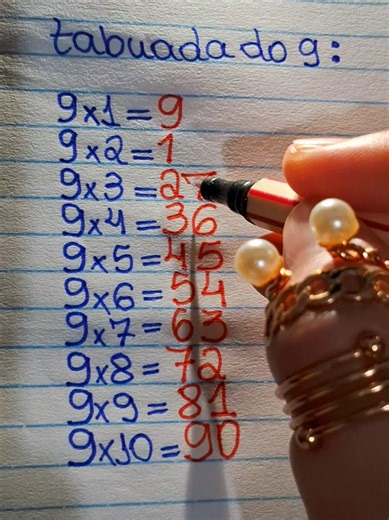 tabuada do 9:
9x1=9
9x2=1
9x3=27
9x4=36
9x5=45
9x6=54
9x7=63
9x8=72
9x9=81
9x10=90